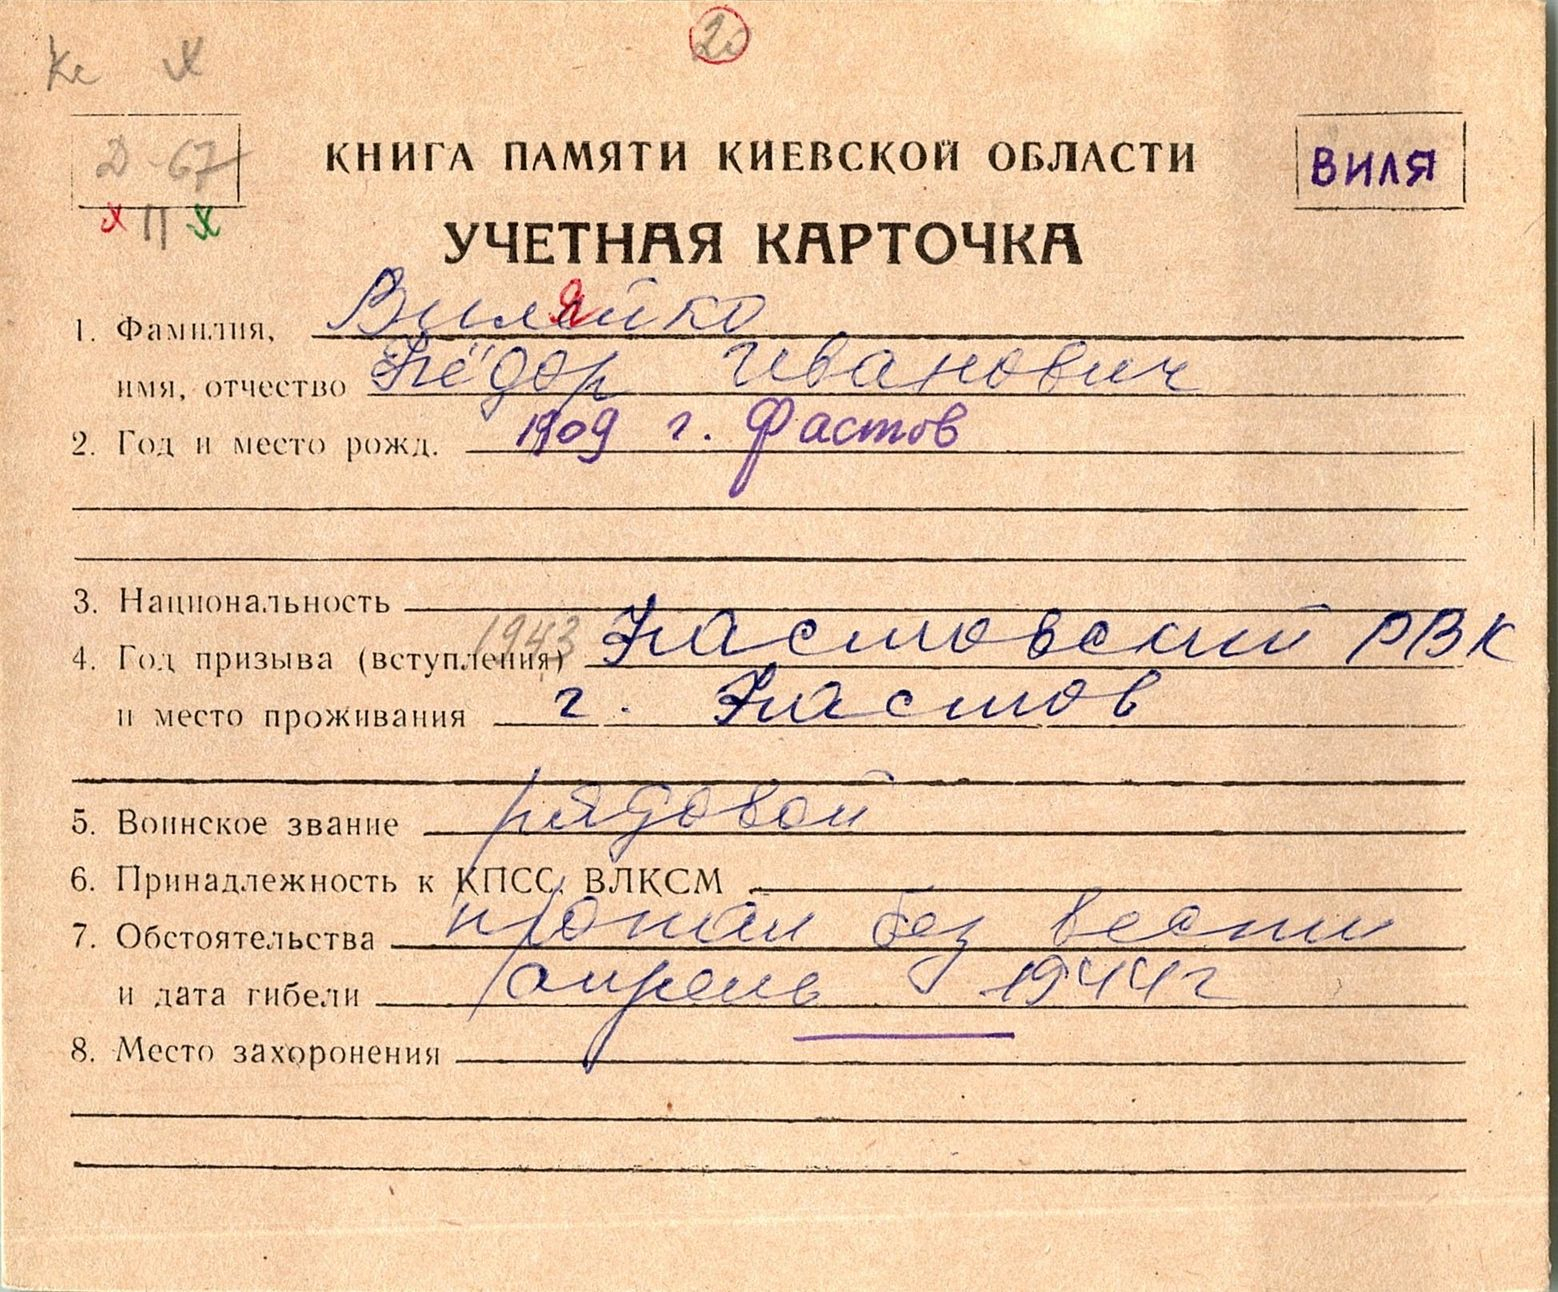 Ке X
20
Д-67
КНИГА ПАМЯТИ КИЕВСКОЙ ОБЛАСТИ
ВИЛЯ
х П х
УЧЕТНАЯ КАРТОЧКА
1. Фамилия, Виляйко
имя, отчество Фёдор Иванович
2. Год и место рожд. 1909 г. Фастов
3. Национальность
4. Год призыва (вступления) 1943 Фастовский РВК
и место проживания г. Фастов
5. Воинское звание рядовой
6. Принадлежность к КПСС, ВЛКСМ
7. Обстоятельства пропал без вести
и дата гибели апрель 1944г
8. Место захоронения